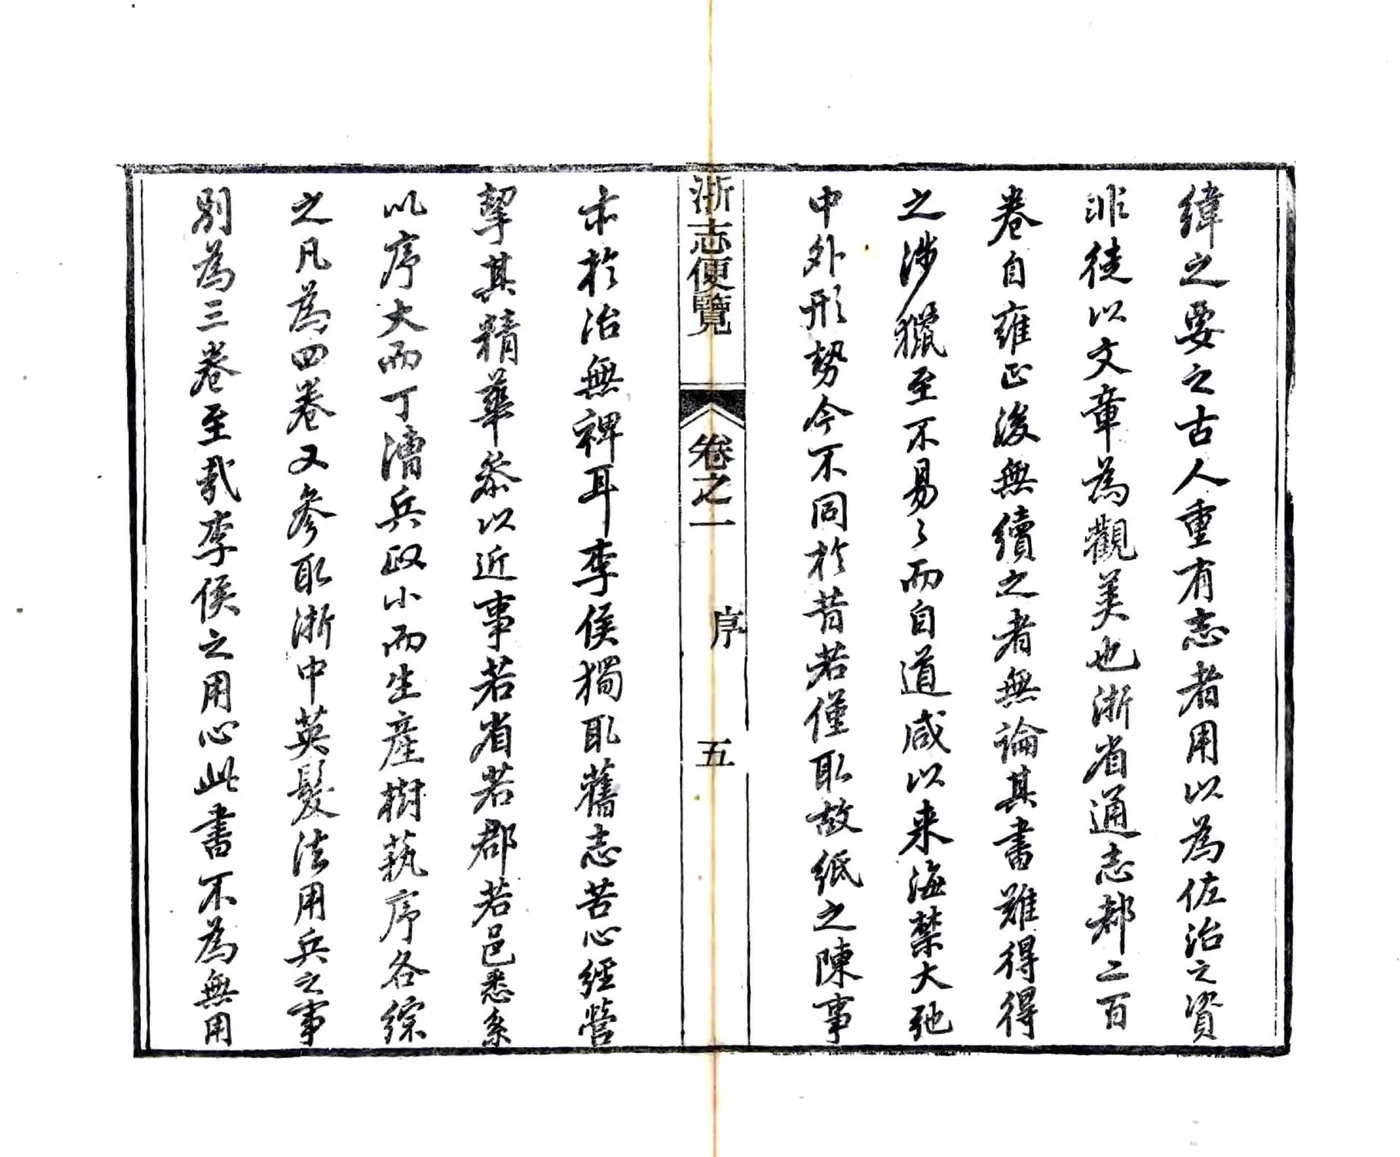 緯之要之古人重有志者用以為佐治之資
非徒以文章為觀美也浙省通志都二百
卷自雍正後無續之者無論其書難得得
之涉獵至不易々而自道咸以来海禁大弛
中外形勢今不同於昔若僅取故紙之陳事
浙志便覽
卷之一
序
五
亦於治無裨耳李侯獨取舊志苦心經營
挈其精華参以近事若省若郡若邑悉系
以序大而丁漕兵政小而生產樹蓺序各綜
之凡為四卷又参取浙中英髮法用兵之事
別為三卷至哉李侯之用心此書不為無用